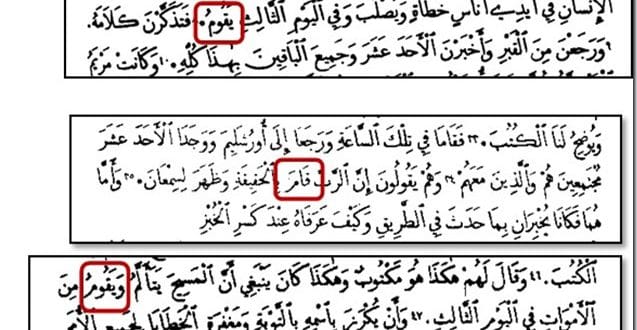 الإنسان في أيدي أناس خطاة ويصلب وفي اليوم الثالث يقوم. فتذكرن كلامه.
٩ورجعن من القبر وأخبرن الأحد عشر وجميع الباقين بهذا كله. ١٠وكانت مريم
ويوضح لنا الكتب. ٣٣فقاما في تلك الساعة ورجعا إلى أورشليم ووجدا الأحد عشر
مجتمعين هم والذين معهم ٣٤وهم يقولون إن الرب قام بالحقيقة وظهر لسمعان. ٣٥وأما
هما فكانا يخبران بما حدث في الطريق وكيف عرفاه عند كسر الخبز
الكتب. ٤٦وقال لهم هكذا هو مكتوب وهكذا كان ينبغي أن المسيح يتألم ويقوم من
الأموات في اليوم الثالث. ٤٧وأن يكرز باسمه بالتوبة ومغفرة الخطايا لجميع الأمم